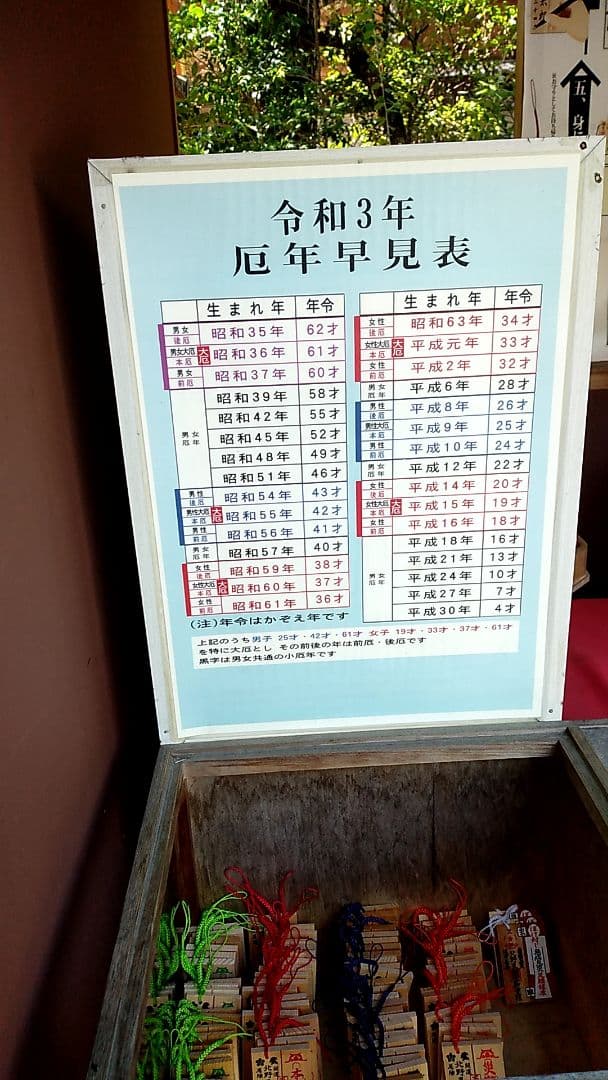 五、身
令和3年
厄年早見表
生まれ年 年令
男女 後厄 昭和35年 62才
男女大厄 本厄 大厄 昭和36年 61才
男女 前厄 昭和37年 60才
男女 厄年 昭和39年 58才
昭和42年 55才
昭和45年 52才
昭和48年 49才
昭和51年 46才
男性 後厄 昭和54年 43才
男性大厄 本厄 大厄 昭和55年 42才
男性 前厄 昭和56年 41才
男女 厄年 昭和57年 40才
女性 後厄 昭和59年 38才
女性大厄 本厄 大厄 昭和60年 37才
女性 前厄 昭和61年 36才
生まれ年 年令
女性 後厄 昭和63年 34才
女性大厄 本厄 大厄 平成元年 33才
女性 前厄 平成2年 32才
男女 厄年 平成6年 28才
男性 後厄 平成8年 26才
男性大厄 本厄 平成9年 25才
男性 前厄 平成10年 24才
男女 厄年 平成12年 22才
女性 後厄 平成14年 20才
女性大厄 本厄 大厄 平成15年 19才
女性 前厄 平成16年 18才
男女 厄年 平成18年 16才
平成21年 13才
平成24年 10才
平成27年 7才
平成30年 4才
(注)年令はかぞえ年です
上記のうち男子 25才・42才・61才 女子 19才・33才・37才・61才
を特に大厄とし その前後の年は前厄・後厄です
黒字は男女共通の小厄年です
北野